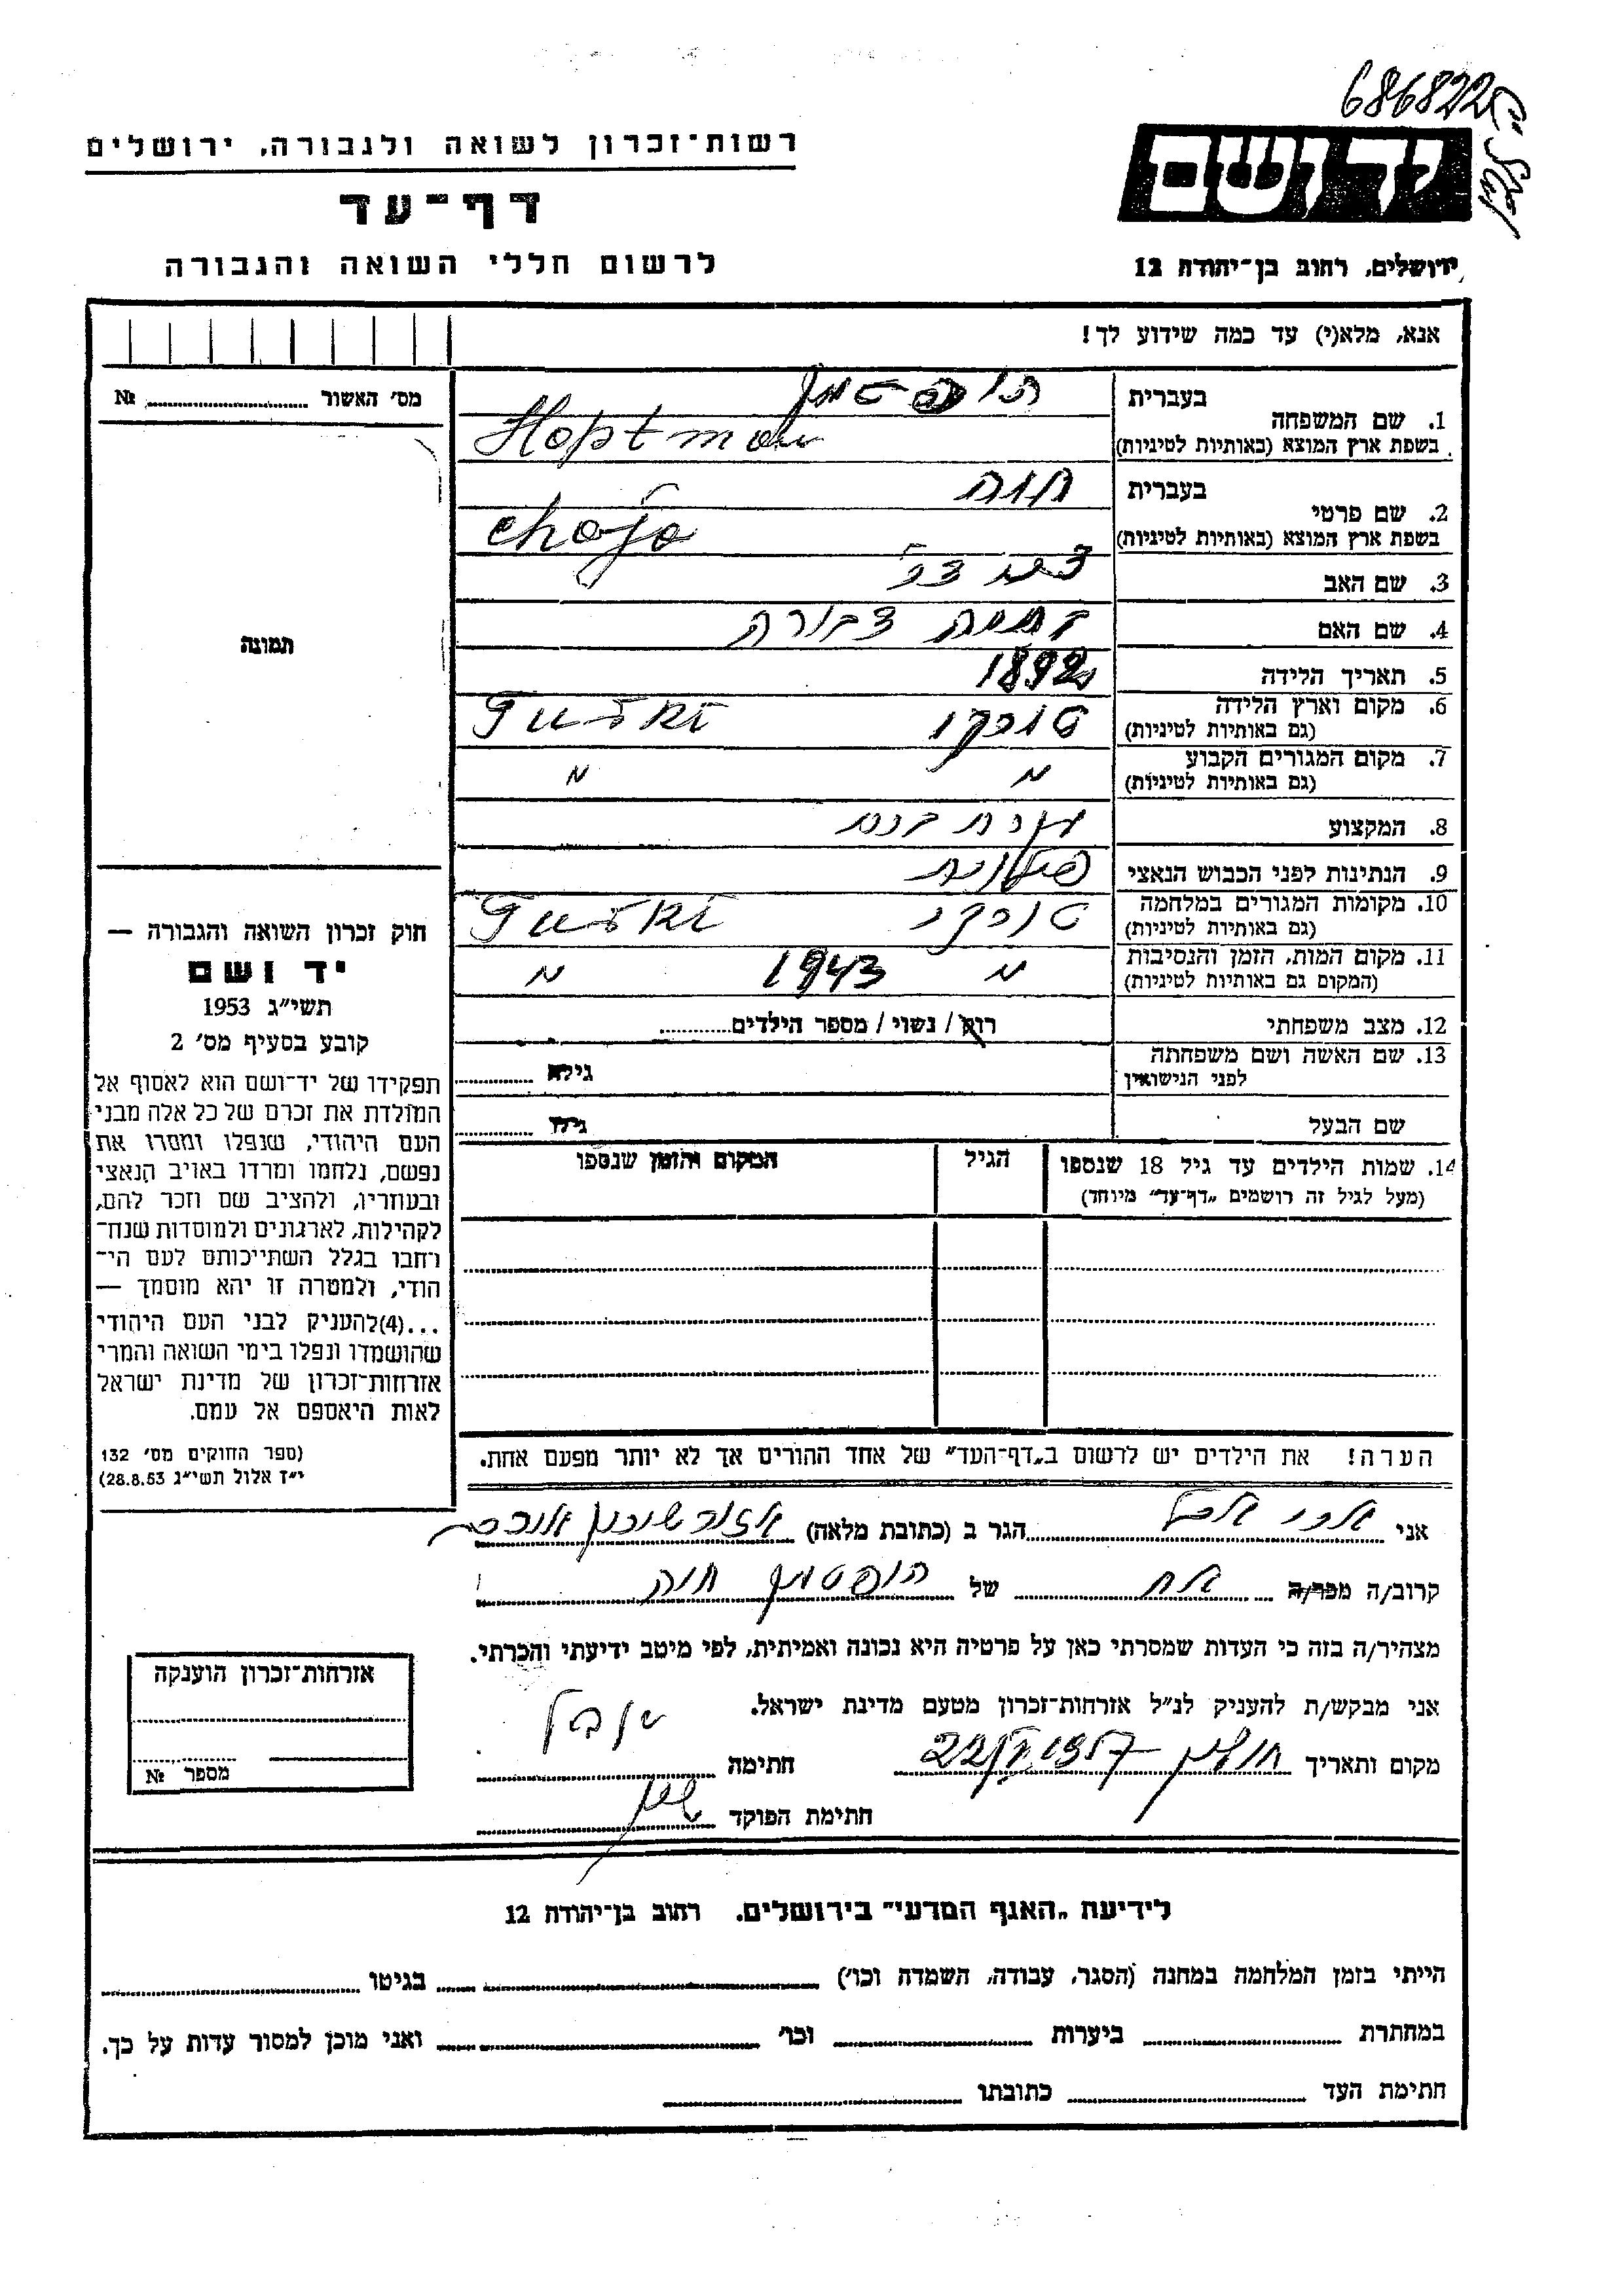 686822
יד ושם
ירושלים, רחוב בן־יהודה 12
רשות־זכרון לשואה ולגבורה, ירושלים
דף־עד
לרשום חללי השואה והגבורה
אנא, מלא(י) עד כמה שידוע לך!
מס' האשור № 
1. שם המשפחה
בעברית הופטמן
בשפת ארץ המוצא (באותיות לטיניות) Hoptman
2. שם פרטי
בעברית חוה
בשפת ארץ המוצא (באותיות לטיניות) Chaja
3. שם האב
4. שם האם דבורה
5. תאריך הלידה 1892
6. מקום וארץ הלידה
(גם באותיות לטיניות) טורקי Turki
7. מקום המגורים הקבוע
(גם באותיות לטיניות) " "
8. המקצוע עקרת בית
9. הנתינות לפני הכבוש הנאצי פולנית
10. מקומות המגורים במלחמה
(גם באותיות לטיניות) טורקי Turki
11. מקום המות, הזמן והנסיבות
(המקום גם באותיות לטיניות) " 1943 "
12. מצב משפחתי רווק / נשוי / מספר הילדים
13. שם האשה ושם משפחתה
לפני הנישואין גילה
שם הבעל גילו
14. שמות הילדים עד גיל 18 שנספו הגיל המקום והזמן שנספו
(מעל לגיל זה רושמים „דף־עד" מיוחד)
הערה! את הילדים יש לרשום ב„דף־העד" של אחד ההורים אך לא יותר מפעם אחת.
תמונה
חוק זכרון השואה והגבורה —
יד ושם
תשי"ג 1953
קובע בסעיף מס' 2
תפקידו של יד־ושם הוא לאסוף אל
המולדת את זכרם של כל אלה מבני
העם היהודי, שנפלו ומסרו את
נפשם, נלחמו ומרדו באויב הנאצי
ובעוזריו, ולהציב שם וזכר להם,
לקהילות, לארגונים ולמוסדות שנח־
רחבו בגלל השתייכותם לעם הי־
הודי, ולמטרה זו יהא מוסמך —
...(4)להעניק לבני העם היהודי
שהושמדו ונפלו בימי השואה והמרי
אזרחות־זכרון של מדינת ישראל
לאות היאספם אל עמם.
(ספר החוקים מס' 132
י"ז אלול תשי"ג 28.8.53)
אני הגר ב (כתובת מלאה) אזור שיכון
קרוב/ה מכר/ה אח של הופטמן חוה
מצהיר/ה בזה כי העדות שמסרתי כאן על פרטיה היא נכונה ואמיתית, לפי מיטב ידיעתי והכרתי.
אני מבקש/ת להעניק לנ"ל אזרחות־זכרון מטעם מדינת ישראל.
מקום ותאריך חולון חתימה
חתימת הפוקד
אזרחות־זכרון הוענקה
מספר №
לידיעת „האגף המדעי" בירושלים, רחוב בן־יהודה 12
הייתי בזמן המלחמה במחנה (הסגר, עבודה, השמדה וכו') בגיטו
במחתרת ביערות וכו' ואני מוכן למסור עדות על כך.
חתימת העד כתובתו